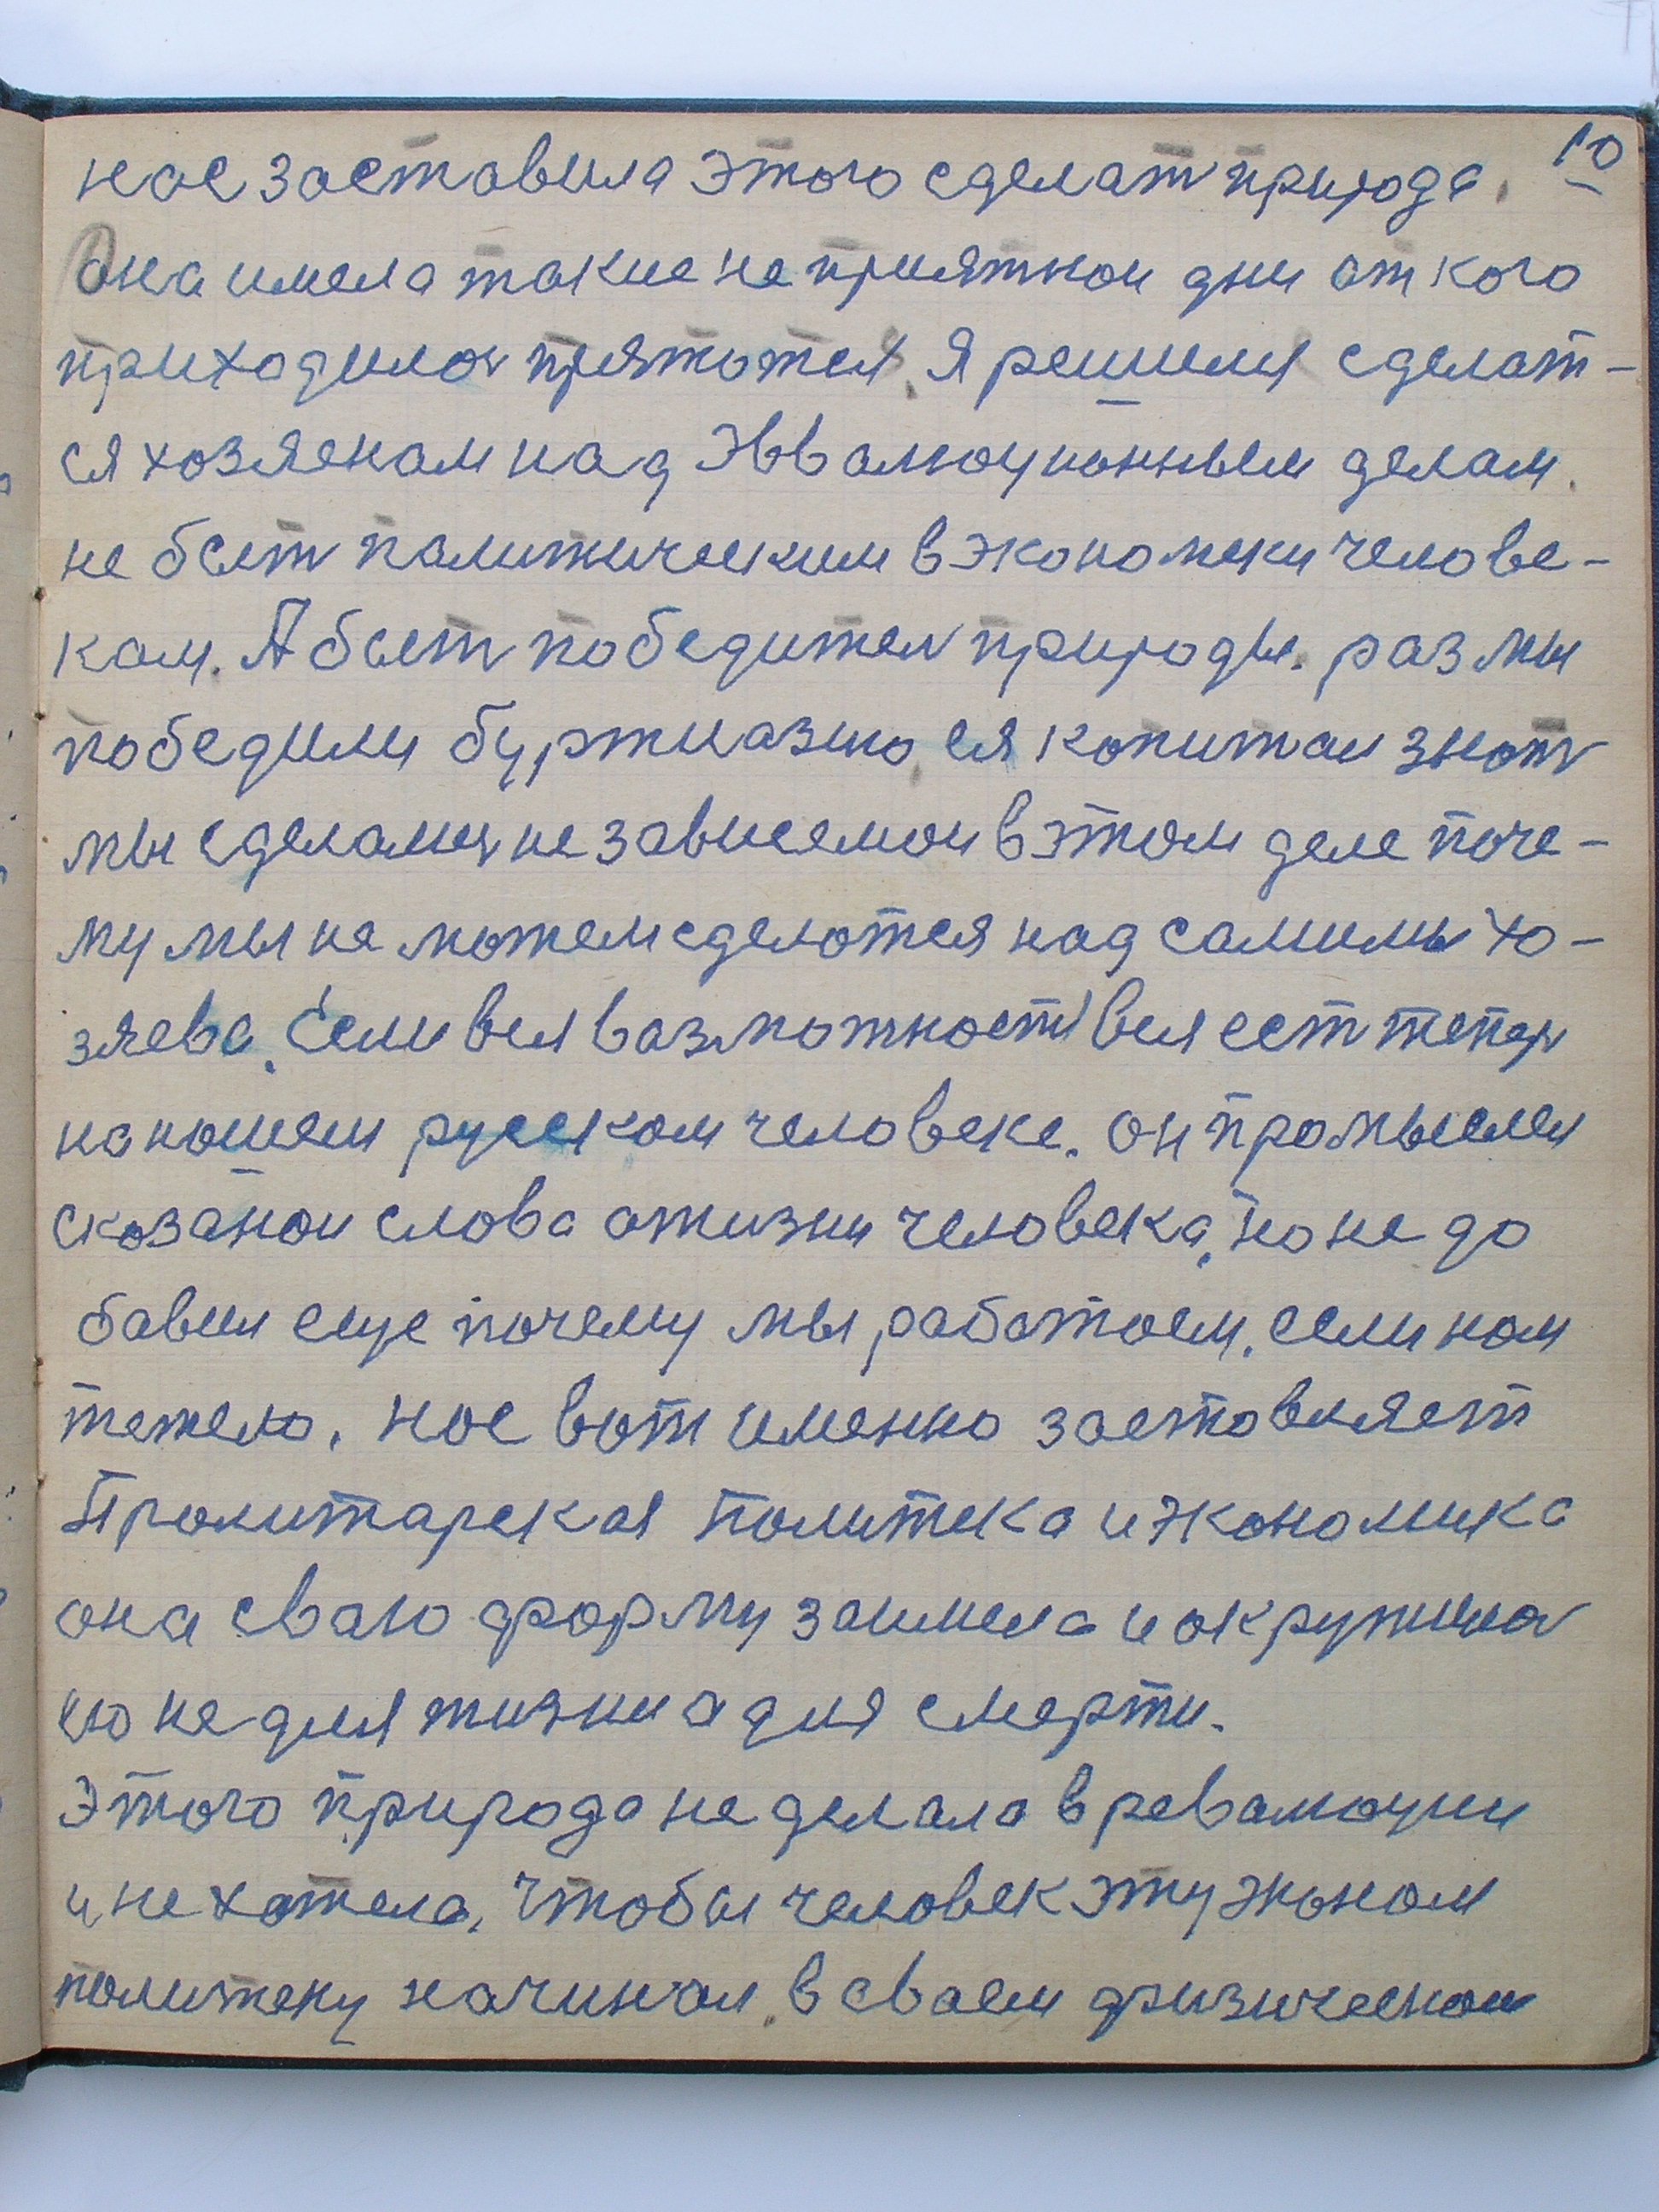 10
нас заставила этого сделат природа.
Она имела такие не приятнои дни от кого
приходилос прятатся. Я решился сделат-
ся хозяенам над Эвволюционным делам.
не быт палитическим в экономеки челове-
кам. А быт победител природы. раз мы
победили буржуазию, ся капитал знат
мы сделалис не зависемои в этом деле поче-
му мы не можем сделатся над самимы хо-
зяева. Если вся вазможност вся ест тепер
на нашем русском человеке. он промыслел
сказанои слова ожизни человека, но не до
бавил еще почему мы работаем. если нам
тежело. нас вот именно заставляет
Пролитарская политека и экономика
она сваю форму заимела и окружилас
ею не для жизни а для смерти.
Этого природа не делала в революции
и не хотела, чтобы человек эту эконом
политеку начинал, в сваем физическои